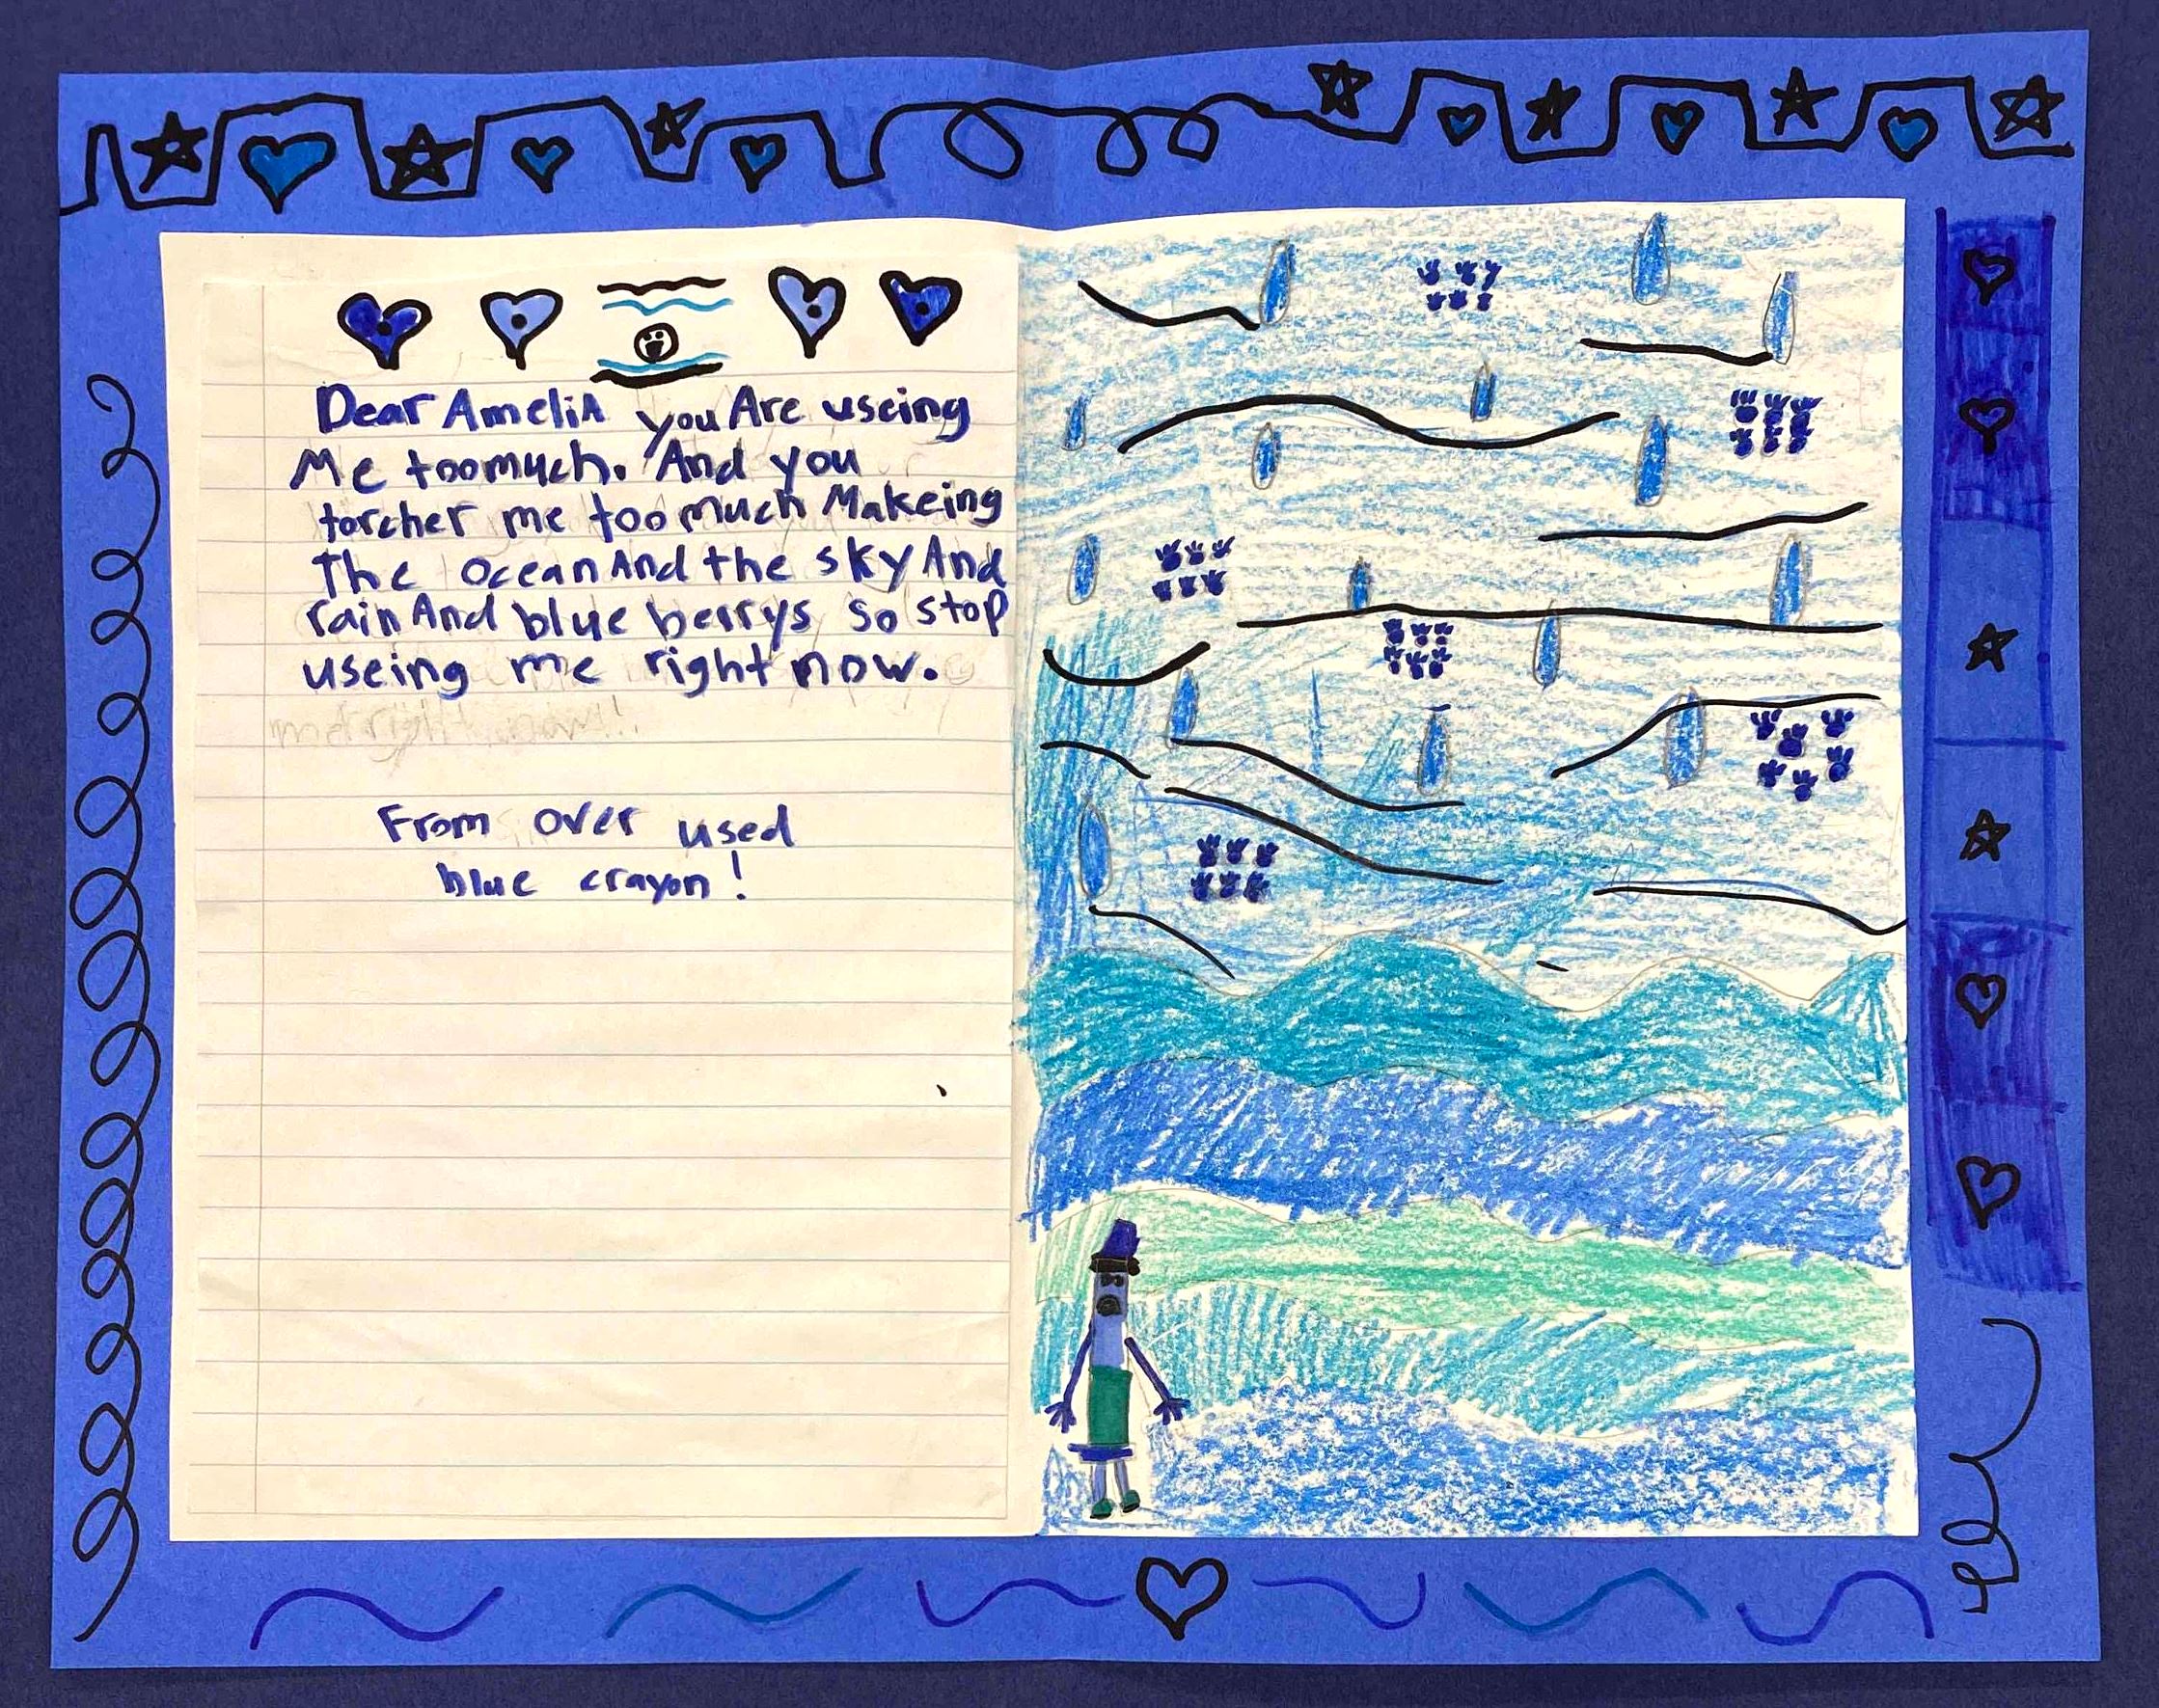 Dear AmeliA you Are useing
Me toomuch. And you
torcher me too much Makeing
The ocean And the sky And
rain And blue berrys so stop
useing me right now.
me right now!!
From over used
blue crayon!